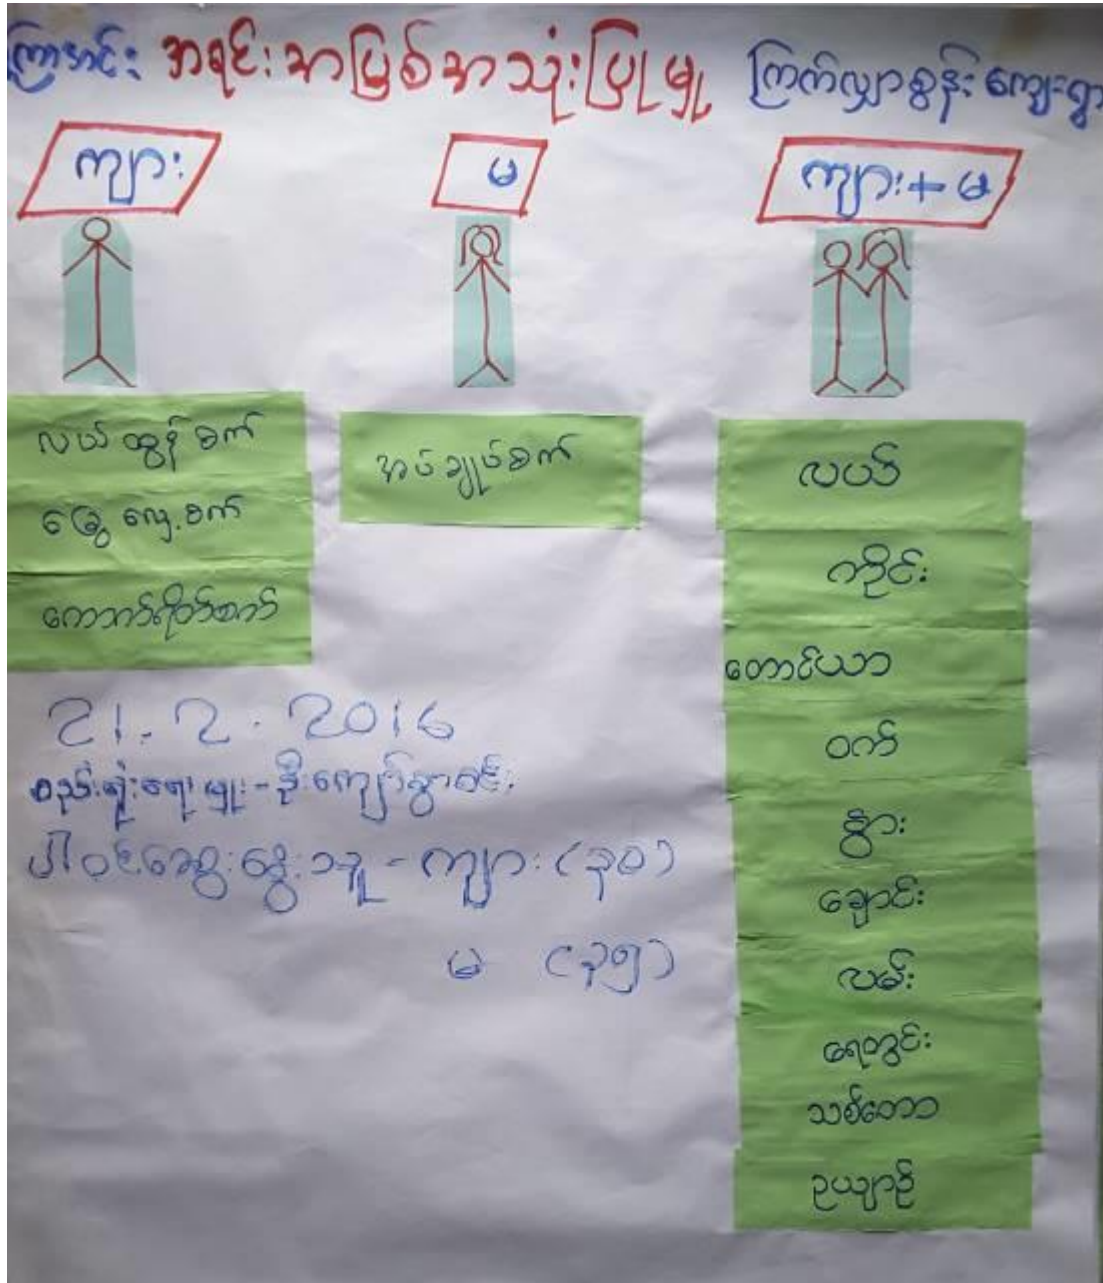 ကြာအင်း အရင်းအမြစ်အသုံးပြုမှု ကြက်လျှာစွန်းကျေးရွာ
ကျား မ ကျား+မ
လယ်ထွန်စက်
မြွေလှေ့စက်
ကောက်ရိတ်စက်
အပ်ချုပ်စက်
လယ်
ကိုင်း
တောင်ယာ
ဝက်
နွား
ချောင်း
လမ်း
ရေတွင်း
သစ်တော
ဥယျာဉ်
21.2.2016
စည်းရုံးရေးမှူး - ဦးကျော်စွာဝင်း
ပါဝင်ဆွေးနွေးသူ - ကျား (၃၀)
မ (၃၅)